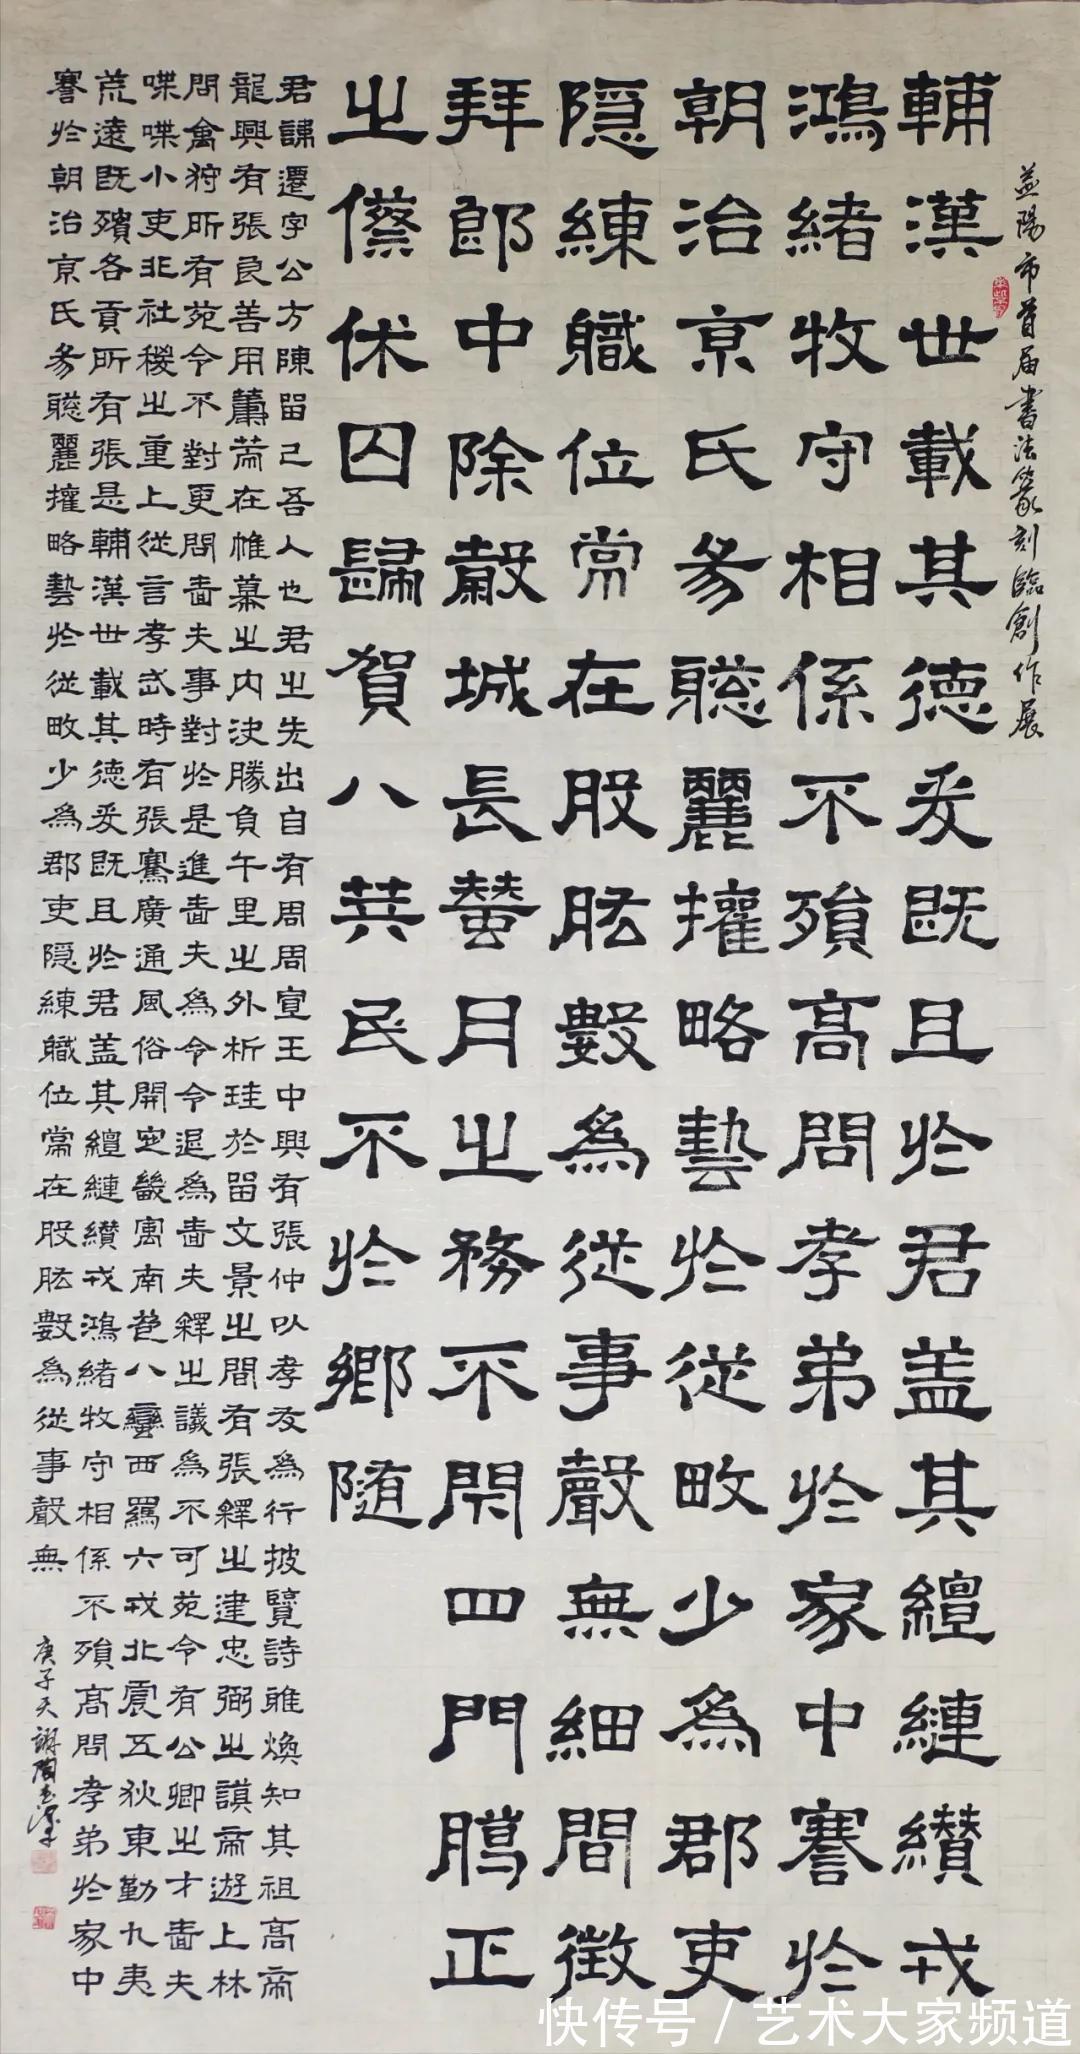 益阳市首届書法篆刻臨創作展
輔漢世載其德爰既且於君盖其繵縺纉戎
鴻緒牧守相係不殞髙問孝弟於家中謇於
朝治京氏易聡麗攉略藝於從畋少為郡吏
隠練軄位常在股肱數為從事聲無細聞徵
拜郎中除糓城長蠶月之務不閉四門腊正
之傺休囚歸賀八䒸民不於鄉随
君諱遷字公方陳留己吾人也君之先出自有周周宣王中興有張仲以孝友為行披覽詩雅煥知其祖髙帝
龍興有張良善用籌策在帷幕之內決勝負午里之外析珪於留文景之間有張釋之建忠弼之謨帝遊上林
問禽狩所有苑令不對更問嗇夫事對於是進嗇夫為令令退為嗇夫釋之議為不可苑令有公卿之才嗇夫
喋喋小吏非社稷之重上從言孝武時有張騫廣通風俗開定畿寓南苞八蠻西羈六戎北震五狄東勤九夷
荒遠既殯各貢所有張是輔漢世載其德爰既且於君盖其繵縺纉戎鴻緒牧守相係不殞髙問孝弟於家中
謇於朝治京氏易聡麗攉略藝於從畋少為郡吏隠練軄位常在股肱數為從事聲無
庚子
快传号／艺术大家频道